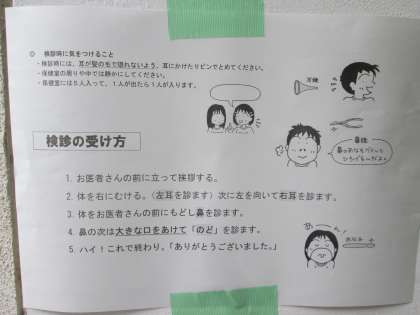 ◎ 検診時に気をつけること
・検診時には、耳が髪の毛で隠れないよう、耳にかけたりピンでとめてください。
・保健室の周りや中では静かにしてください。
・保健室には5人入って、1人が出たら1人が入ります。
耳鏡
検診の受け方
鼻鏡
1. お医者さんの前に立って挨拶する。
2. 体を右にむける。(左耳を診ます) 次に左を向いて右耳を診ます。
3. 体をお医者さんの前にもどし鼻を診ます。
4. 鼻の次は大きな口をあけて「のど」を診ます。
5. ハイ!これで終わり。「ありがとうございました。」